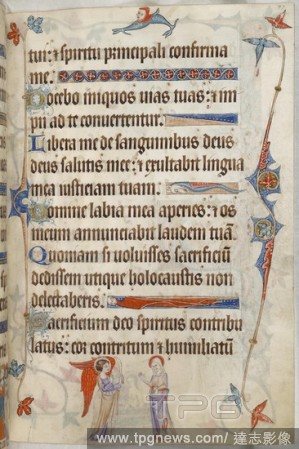 tui: & spiritu principali confirma
me.
Docebo iniquos vias tuas: & im
pii ad te convertentur.
Libera me de sanguinibus deus
deus salutis mee: & exultabit lingua
mea iusticiam tuam.
Domine labia mea aperies: & os
meum annunciabit laudem tuā.
Quoniam si voluisses sacrificiū
dedissem utique holocaustis non
delectaberis.
Sacrificium deo spiritus contribu
latus: cor contritum & humiliatū
TPG
www.tpgnews.com/ 達志影像